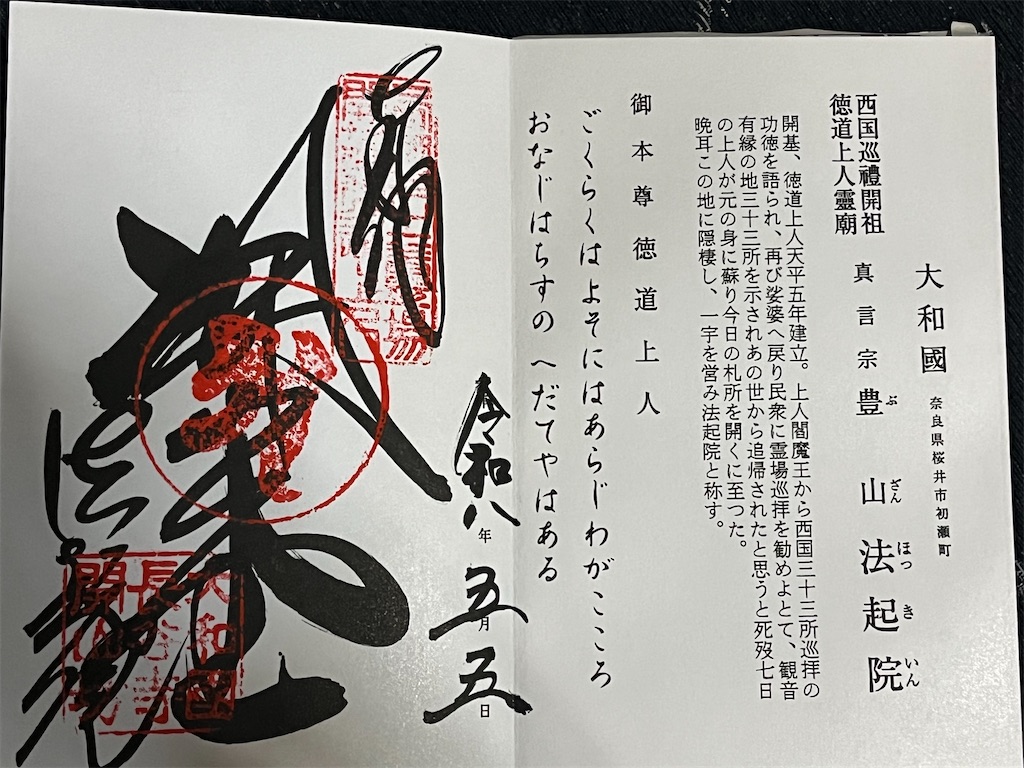 大和國
奈良県桜井市初瀬町
真言宗豊山法起院
ぶ ざん ほっ き いん
西国巡禮開祖
徳道上人靈廟
開基、徳道上人天平五年建立。上人閻魔王から西国三十三所巡拝の
功徳を語られ、再び娑婆へ戻り民衆に霊場巡拝を勧めよとて、観音
有縁の地三十三所を示されあの世から追帰されたと思うと死歿七日
の上人が元の身に蘇り今日の札所を開くに至つた。
晩耳この地に隠棲し、一宇を営み法起院と称す。
御本尊徳道上人
ごくらくはよそにはあらじわがこころ
おなじはちすの へだてやはある
令和八年五月五日
大和國
長谷寺
開山坊